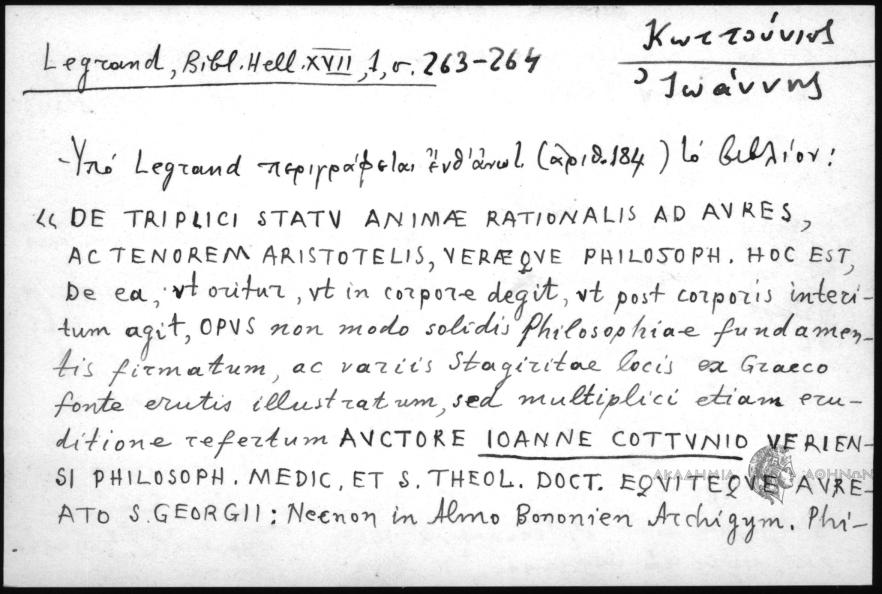 Κωττούνιος
Ἰωάννης
Legrand, Bibl. Hell. XVII, 1, σ. 263-264
- Ὑπό Legrand περιγράφεται ἔνθ' ἀνωτ. (ἀριθ. 184) τό βιβλίον:
« DE TRIPLICI STATV ANIMÆ RATIONALIS AD AVRES,
AC TENOREM ARISTOTELIS, VERÆQVE PHILOSOPH. HOC EST,
De ea, vt oritur, vt in corpore degit, vt post corporis interi-
tum agit, OPVS non modo solidis Philosophiae fundamen-
tis firmatum, ac variis Stagiritae locis ex Graeco
fonte erutis illustratum, sed multiplici etiam eru-
ditione refertum AVCTORE IOANNE COTTVNIO VERIEN-
SI PHILOSOPH. MEDIC, ET S. THEOL. DOCT. EQVITEQVE AVRE-
ATO S. GEORGII: Necnon in Almo Bononien Archigym. Phi-
ΑΚΑΔΗΜΙΑ ΑΘΗΝΩΝ